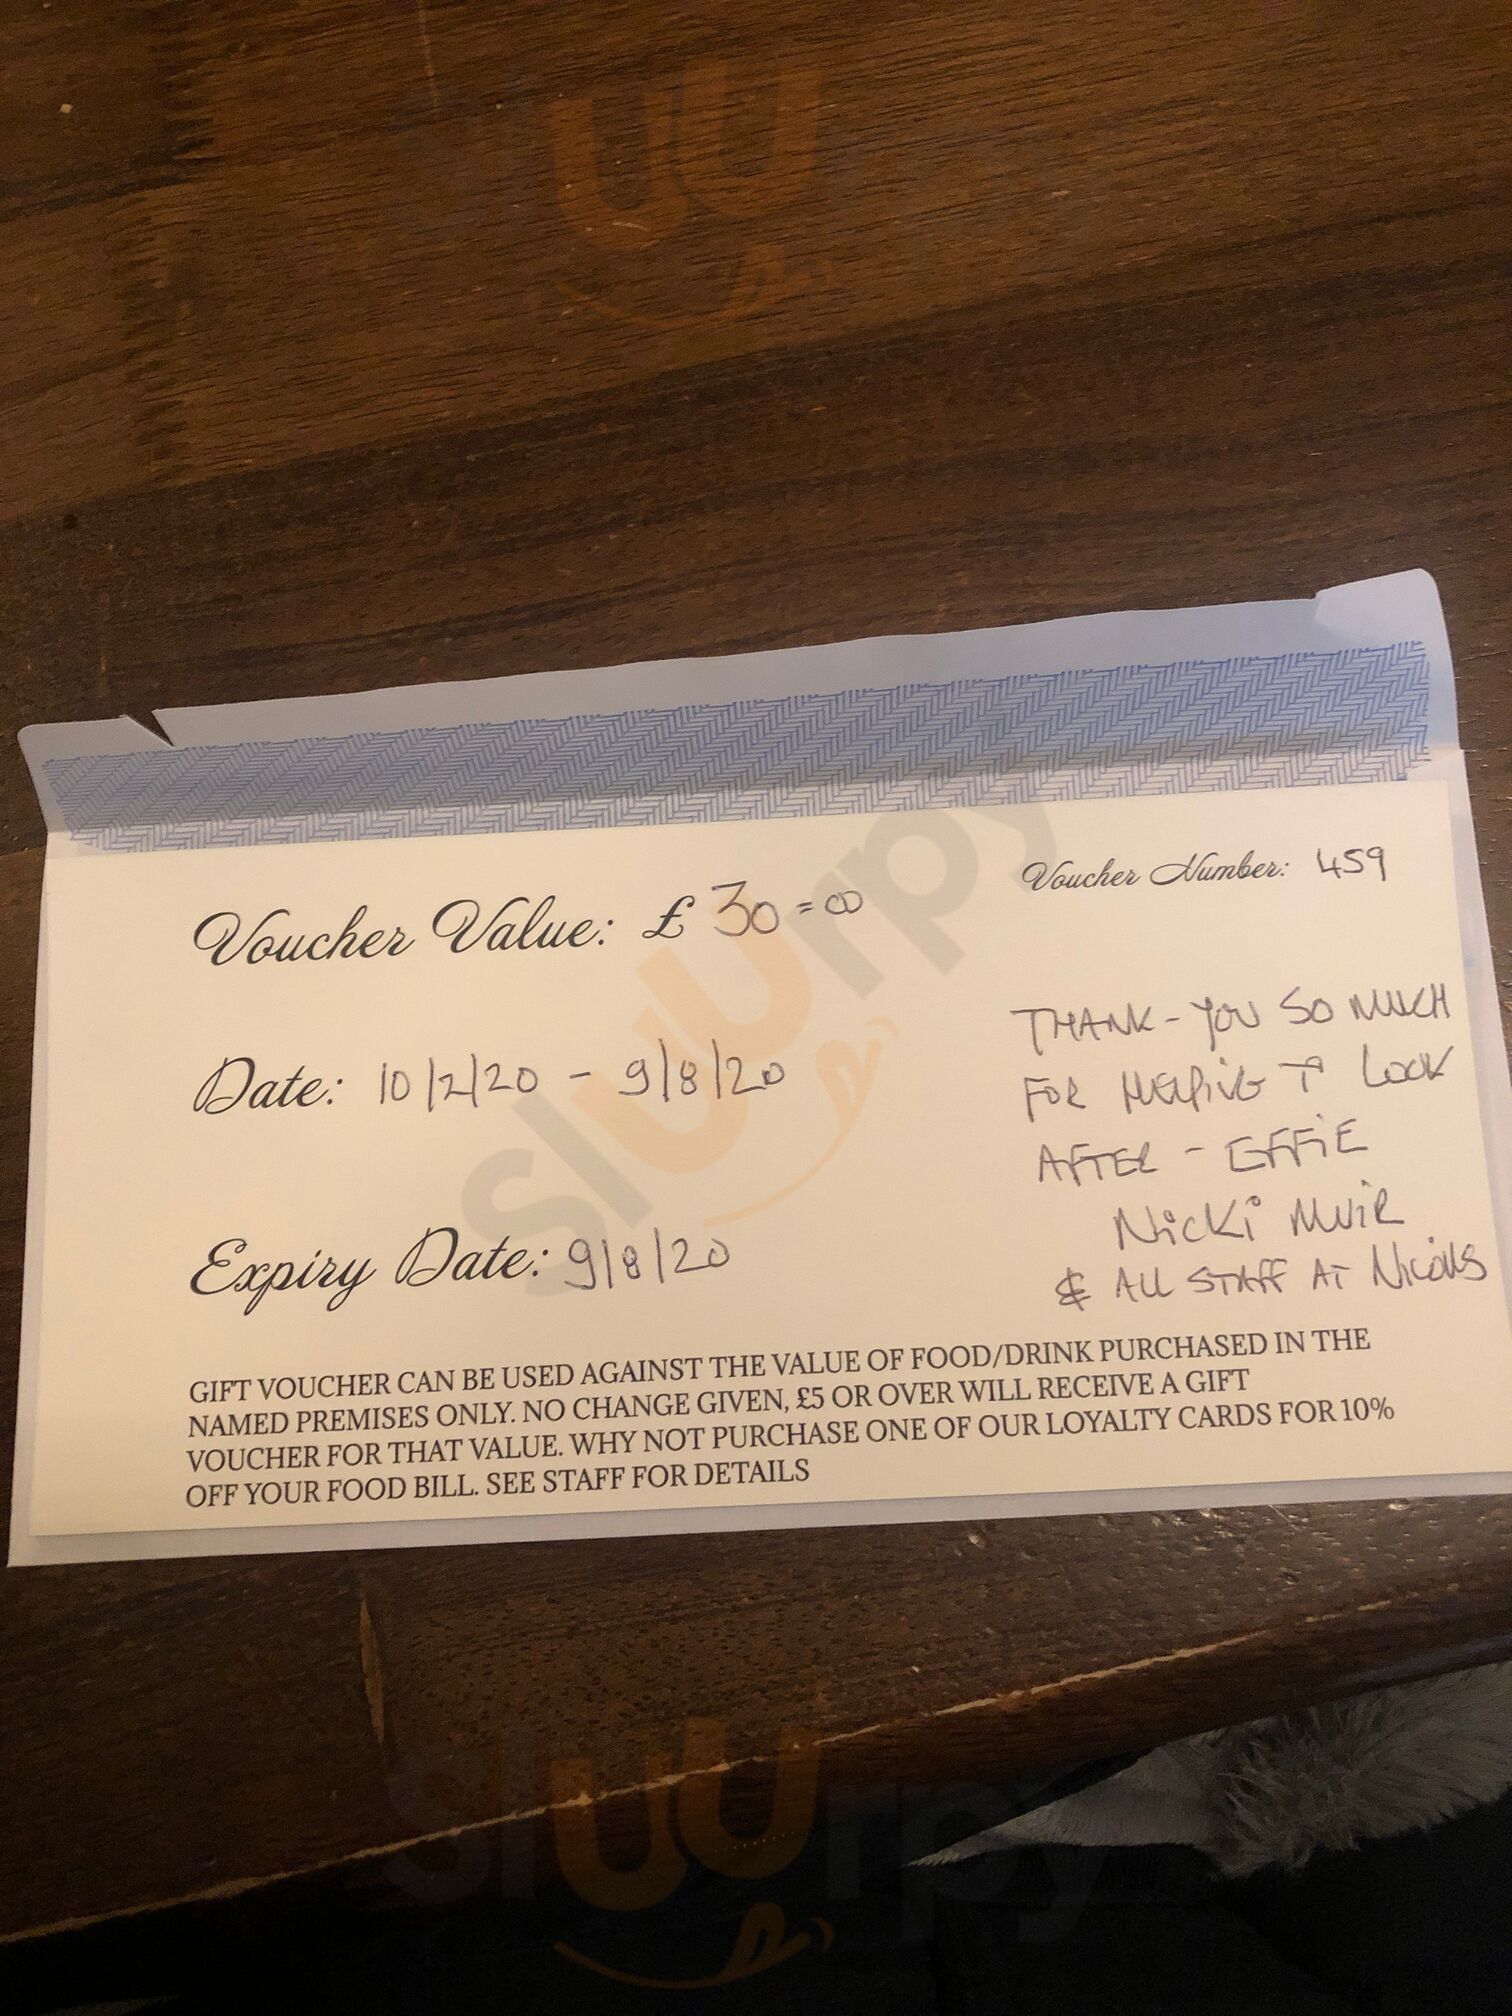 Voucher Number: 459
Voucher Value: £ 30=00
THANK-YOU SO MUCH
FOR HELPING TO LOOK
AFTER - EFFIE
NICKI MUIR
& ALL STAFF AT
Date: 10/2/20 - 9/8/20
Expiry Date: 9/8/20
GIFT VOUCHER CAN BE USED AGAINST THE VALUE OF FOOD/DRINK PURCHASED IN THE
NAMED PREMISES ONLY. NO CHANGE GIVEN, £5 OR OVER WILL RECEIVE A GIFT
VOUCHER FOR THAT VALUE. WHY NOT PURCHASE ONE OF OUR LOYALTY CARDS FOR 10%
OFF YOUR FOOD BILL. SEE STAFF FOR DETAILS
sluurpy
sluurpy